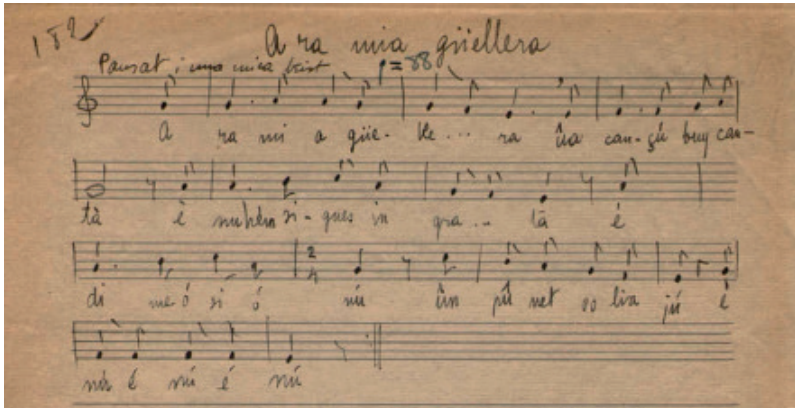 182
A ra mia güellera
Pausat i una mica trist = 88
A ra mi a güe- lle... ra ûa can-çú buy can-
tà è si-ques in gra... tà é
di me ó si ó nú ûn pû net so liu jú é
nú é nú é nú